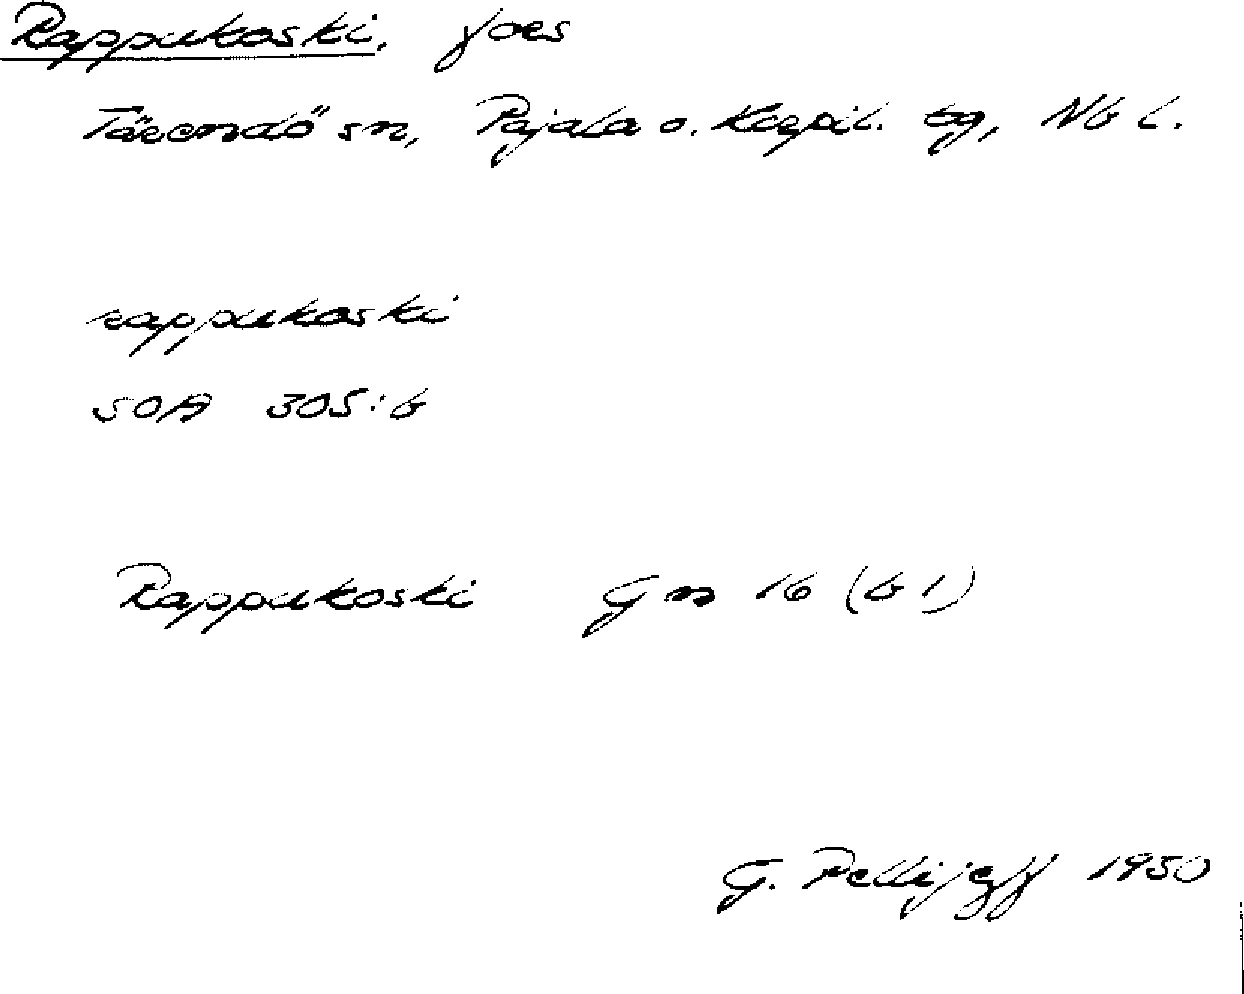 Rappukoski, fors
Tärendö sn, Pajala o. Korpil. tg, Nb l.
rappukoski
SOA 305:6
Rappukoski Gn 16 (b 1)
G. Pellijeff 1950